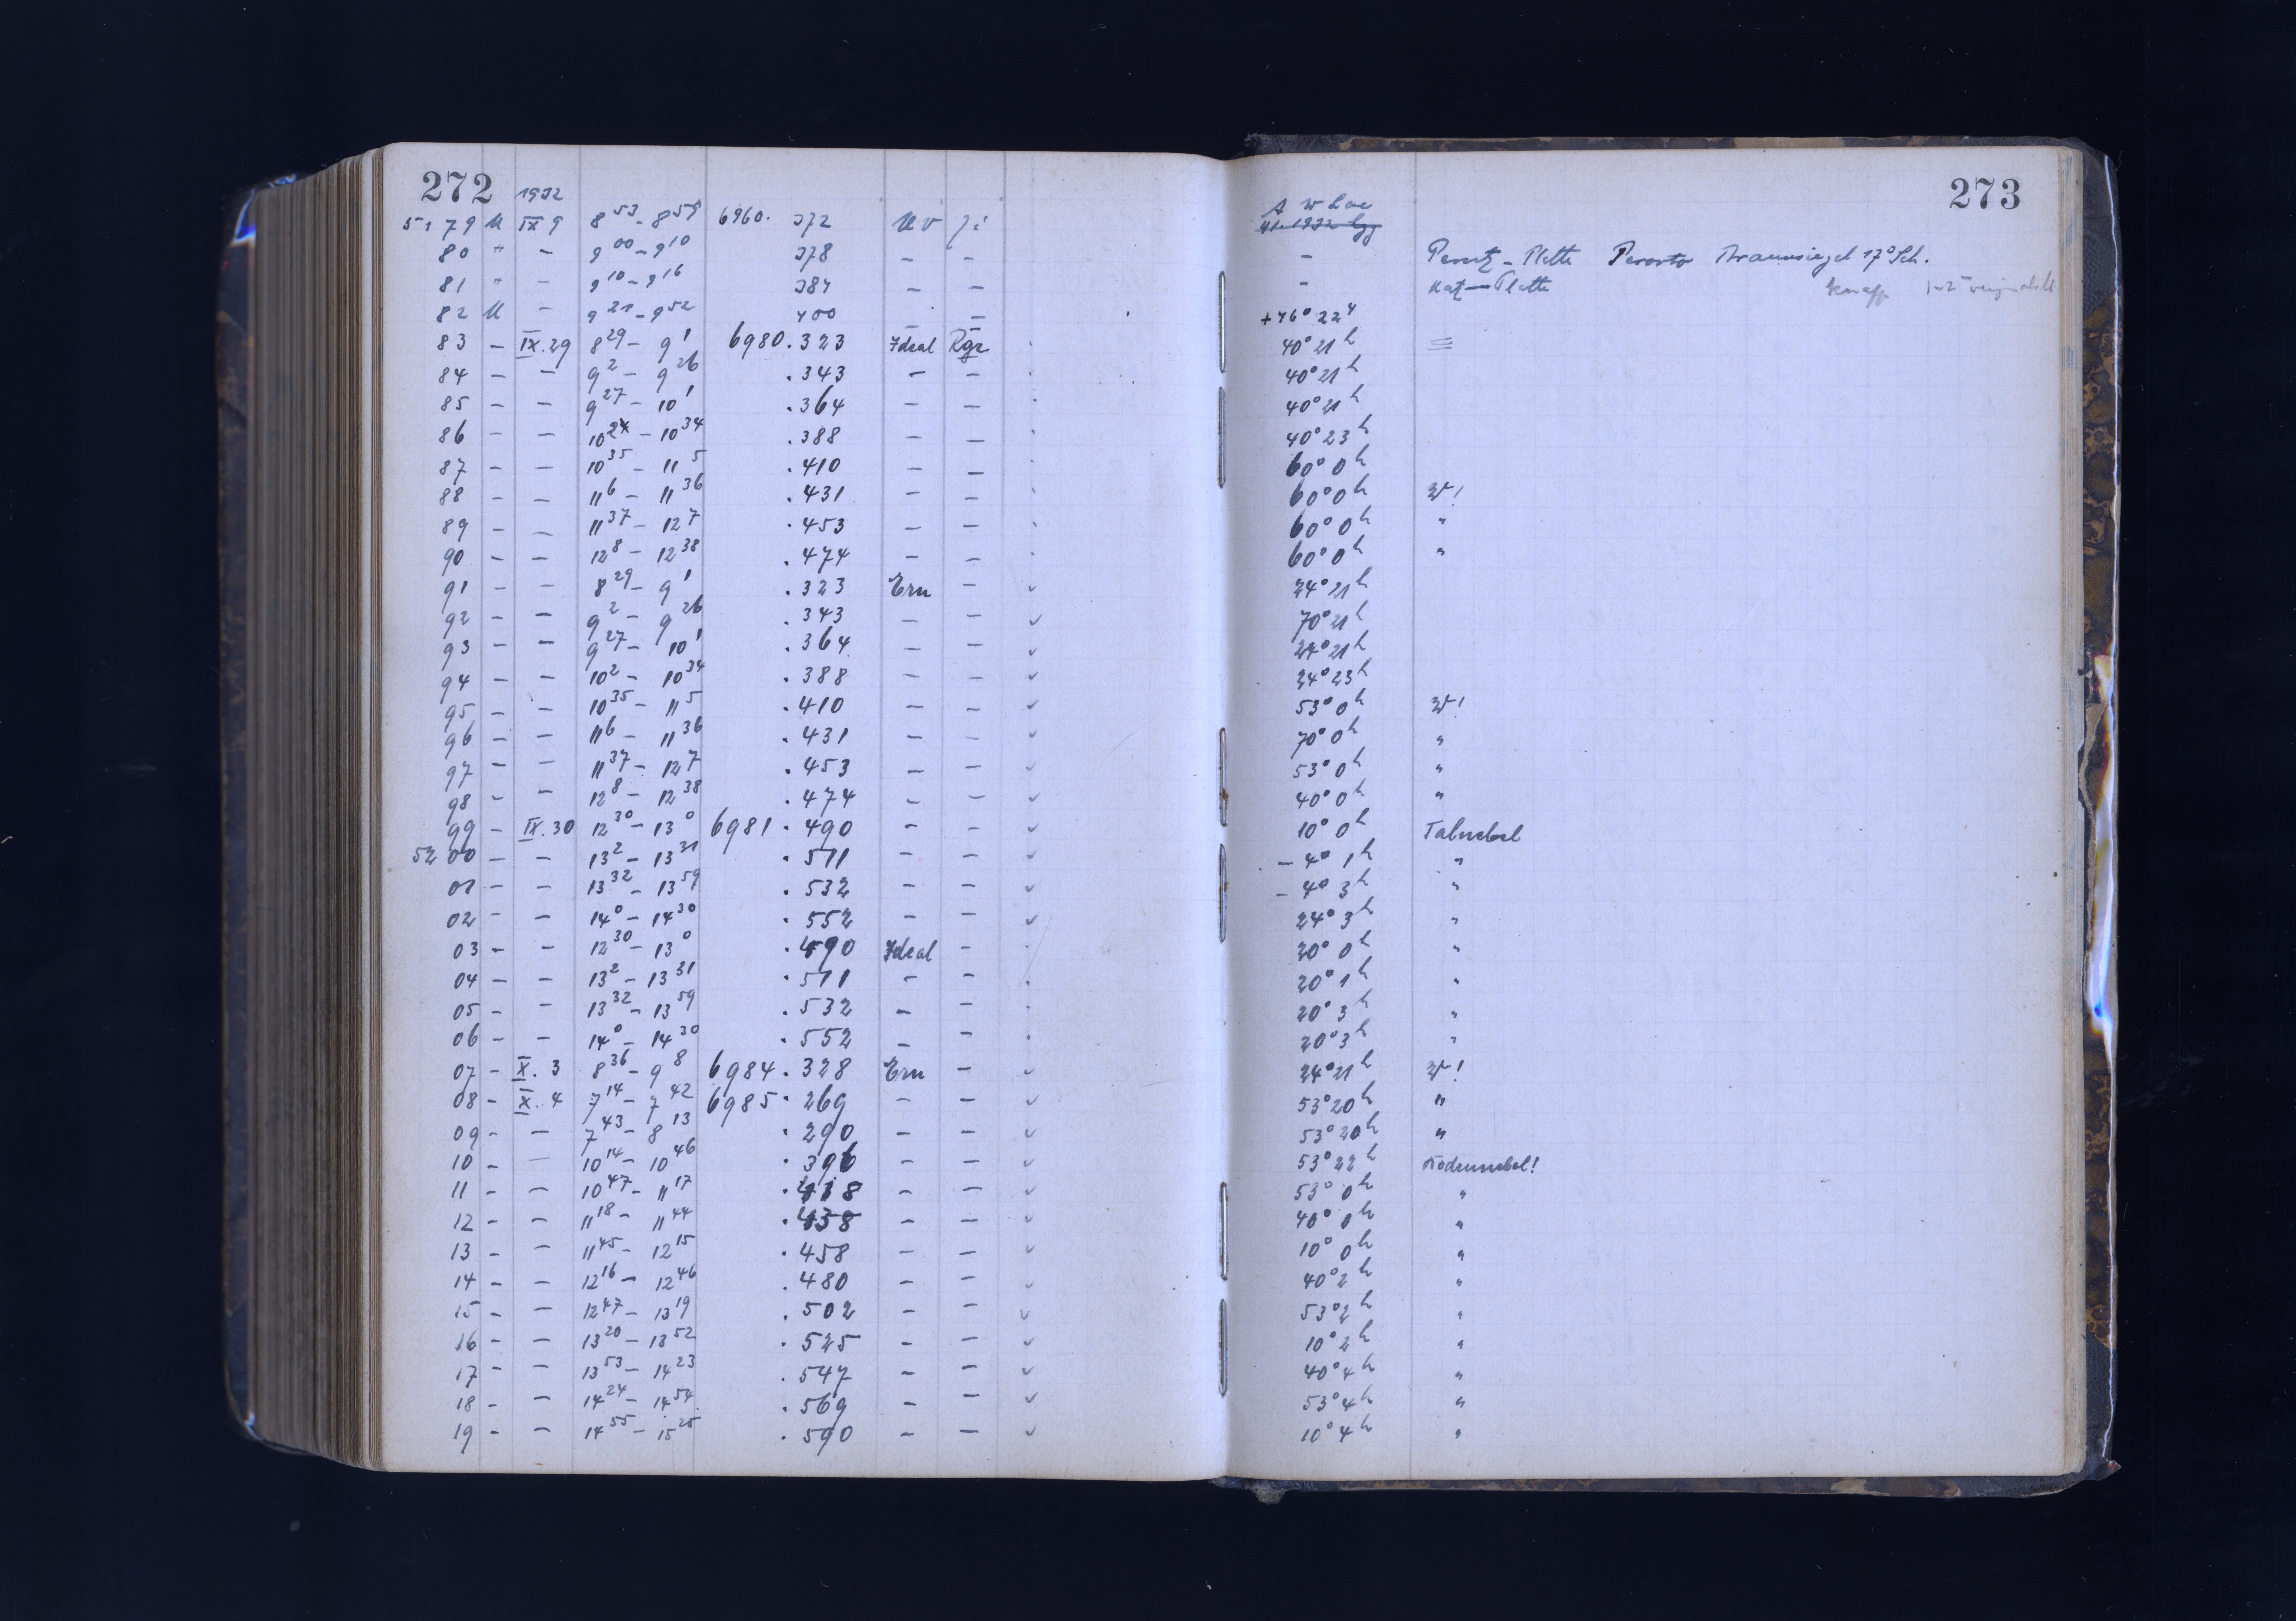 272
1932
5179 U IX 9 8⁵³ - 8⁵⁹ 6960. 372 UV
80 " - 9⁰⁰ - 9¹⁰ 378 - -
81 " - 9¹⁰ - 9¹⁶ 384 - -
82 U - 9²¹ - 9⁵² 400 - -
83 - IX.29 8²⁹ - 9¹ 6980.323 Ideal Rgr
84 - - 9² - 9²⁶ .343 - -
85 - - 9²⁷ - 10¹ .364 - -
86 - - 10²⁴ - 10³⁴ .388 - -
87 - - 10³⁵ - 11⁵ .410 - -
88 - - 11⁶ - 11³⁶ .431 - -
89 - - 11³⁷ - 12⁷ .453 - -
90 - - 12⁸ - 12³⁸ .474 - -
91 - - 8²⁹ - 9¹ .323 Ern - ✓
92 - - 9² - 9²⁶ .343 - - ✓
93 - - 9²⁷ - 10¹ .364 - - ✓
94 - - 10² - 10³⁴ .388 - - ✓
95 - - 10³⁵ - 11⁵ .410 - - ✓
96 - - 11⁶ - 11³⁶ .431 - - ✓
97 - - 11³⁷ - 12⁷ .453 - - ✓
98 - - 12⁸ - 12³⁸ .474 - - ✓
99 - IX.30 12³⁰ - 13⁰ 6981.490 - - ✓
5200 - - 13² - 13³¹ .511 - - ✓
01 - - 13³² - 13⁵⁹ .532 - - ✓
02 - - 14⁰ - 14³⁰ .552 - - ✓
03 - - 12³⁰ - 13⁰ .490 Ideal -
04 - - 13² - 13³¹ .511 - -
05 - - 13³² - 13⁵⁹ .532 - -
06 - - 14⁰ - 14³⁰ .552 - -
07 - X. 3 8³⁶ - 9⁸ 6984.328 Ern - ✓
08 - X. 4 7¹⁴ - 7⁴² 6985.269 - - ✓
09 - - 7⁴³ - 8¹³ .290 - - ✓
10 - - 10¹⁴ - 10⁴⁶ .396 - - ✓
11 - - 10⁴⁷ - 11¹⁷ .418 - - ✓
12 - - 11¹⁸ - 11⁴⁴ .438 - - ✓
13 - - 11⁴⁵ - 12¹⁵ .458 - - ✓
14 - - 12¹⁶ - 12⁴⁶ .480 - - ✓
15 - - 12⁴⁷ - 13¹⁹ .502 - - ✓
16 - - 13²⁰ - 13⁵² .525 - - ✓
17 - - 13⁵³ - 14²³ .547 - - ✓
18 - - 14²⁴ - 14⁵⁴ .569 - - ✓
19 - - 14⁵⁵ - 15²⁵ .590 - - ✓
273
A w Lac
- Perutz - Platte Peroxto Braunsiegel 17° Sch.
- Katz - Platte knapp
+46° 22
40° 21ʰ
40° 21ʰ
40° 21ʰ
40° 23ʰ
60° 0ʰ
60° 0ʰ W!
60° 0ʰ "
60° 0ʰ "
24° 21ʰ
70° 21ʰ
24° 21ʰ
24° 23ʰ
53° 0ʰ W!
70° 0ʰ "
53° 0ʰ "
40° 0ʰ "
10° 0ʰ Talnebel
- 4° 1ʰ "
- 4° 3ʰ "
24° 3ʰ "
20° 0ʰ "
20° 1ʰ "
20° 3ʰ "
20° 3ʰ "
24° 21ʰ W!
53° 20ʰ "
53° 20ʰ "
53° 22ʰ Bodennebel!
53° 0ʰ "
40° 0ʰ "
10° 0ʰ "
40° 2ʰ "
53° 2ʰ "
10° 2ʰ "
40° 4ʰ "
53° 4ʰ "
10° 4ʰ "